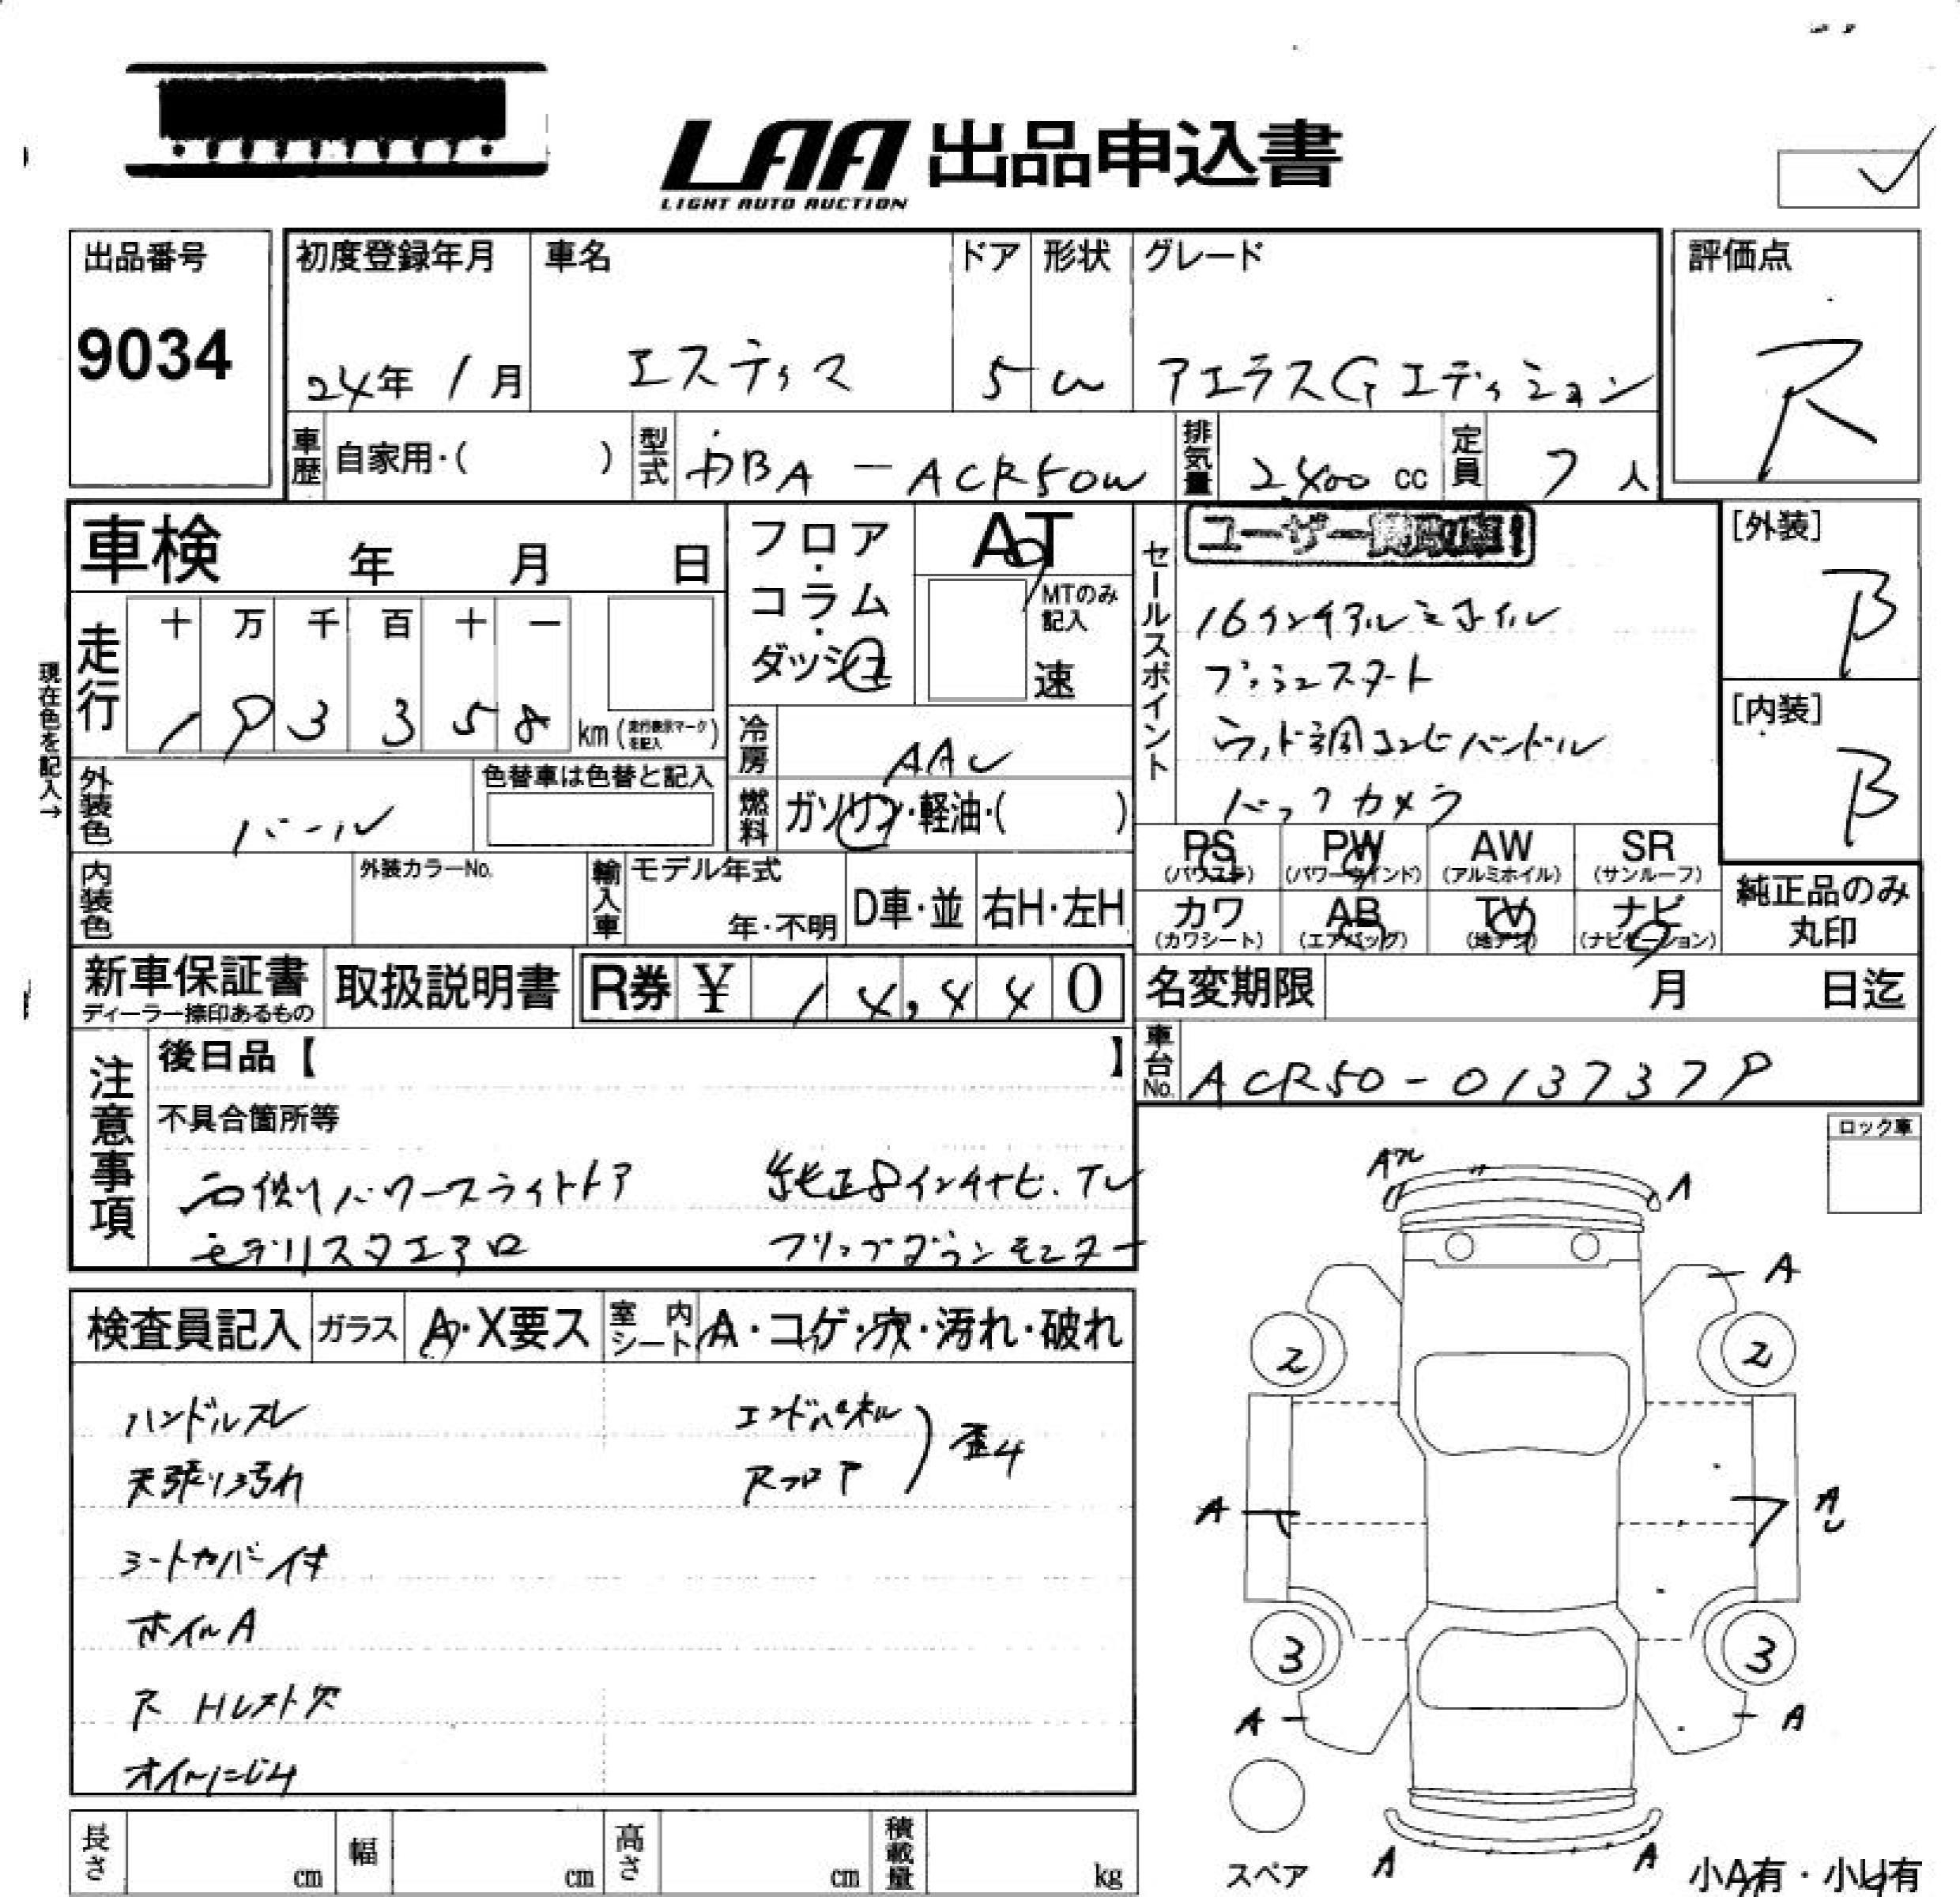 LAA 出品申込書
LIGHT AUTO AUCTION
出品番号
9034
初度登録年月
24年 1月
車名
エスティマ
ドア
5
形状
W
グレード
アエラスGエディション
評価点
R
車歴
自家用・( )
型式
DBA-ACR50W
排気量
2,400 cc
定員
7 人
車検 年 月 日
フロア・コラム・ダッシュ
AT
MTのみ記入
速
セールスポイント
ユーザー
16インチアルミホイル
プッシュスタート
ウッド調コンビハンドル
バックカメラ
[外装]
B
[内装]
B
走行
十 万 千 百 十 一
1 9 3 3 5 8 km (走行表示マークを記入)
現在色を記入→
冷房
AAC
燃料
ガソリン・軽油・( )
外装色
パール
色替車は色替と記入
内装色
外装カラーNo.
輸入車
モデル年式
年・不明
D車・並
右H・左H
PS
(パワステ)
PW
(パワーウインド)
AW
(アルミホイル)
SR
(サンルーフ)
カワ
(カワシート)
AB
(エアバッグ)
TV
(地デジ)
ナビ
(ナビゲーション)
純正品のみ
丸印
新車保証書
ディーラー捺印あるもの
取扱説明書
R券 ¥ 14,440
名変期限 月 日迄
車台No.
ACR50-0137379
注意事項
後日品【 】
不具合箇所等
右側パワースライドドア 純正8インチナビ.TV
モデリスタエアロ フリップダウンモニター
ロック車
検査員記入
ガラス
A・X要ス
室内シート
A・コゲ・穴・汚れ・破れ
ハンドルスレ
天張り汚れ
シートカバー付
ホイルA
R Hレスト欠
オイルにじみ
エンドパネル
Rフロア
歪み
A
A
A
2
2
A
A
3
3
A
A
A
A
スペア
小A有・小U有
長さ cm
幅 cm
高さ cm
積載量 kg